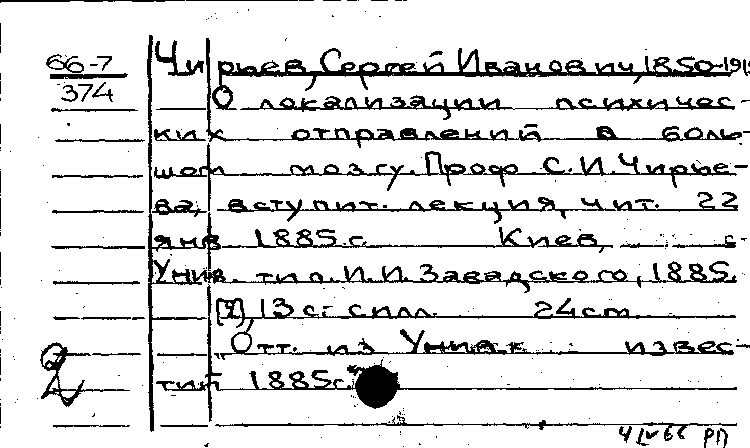 66-7
374
Чирьев, Сергей Иванович, 1850-191
О локализации психичес-
ких отправлений в боль-
шом мозгу. Проф С.И. Чирье-
ва, вступит. лекция, чит. 22
янв 1885 г. Киев,
Унив. тип. И.И. Завадского, 1885.
13 с. с илл. 24 cm.
"Отт. из Унив-к извес-
тий 1885г."
2